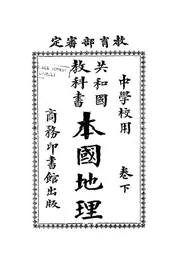 教育部審定
中學校用
卷下
共和國
教科書
本國地理
商務印書館出版